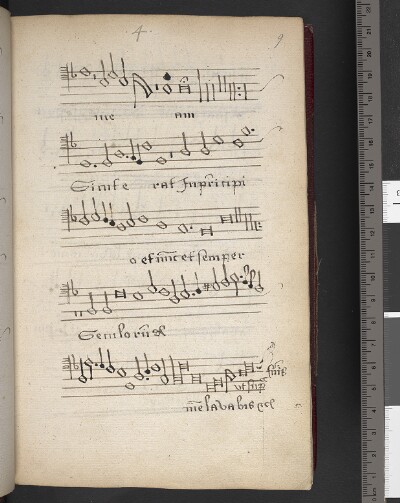 4
9
me am
Sicut e rat In principi
o et nunc et semper
Seculorum &
ut supra
me lavabis &c